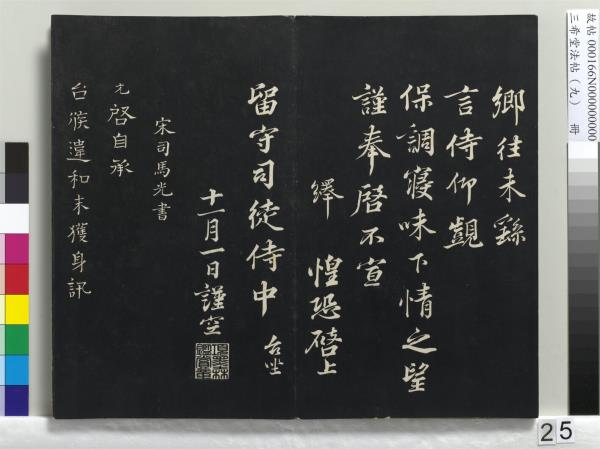 鄉往未繇
言侍仰覬
保調寢味下情之望
謹奉啓不宣
繹 惶恐啓上
留守司徒侍中 台坐
十一月一日謹空
宋司馬光書
光啓自承
台候違和未獲身訊
故帖 000166N000000000
三希堂法帖(九) 冊
25